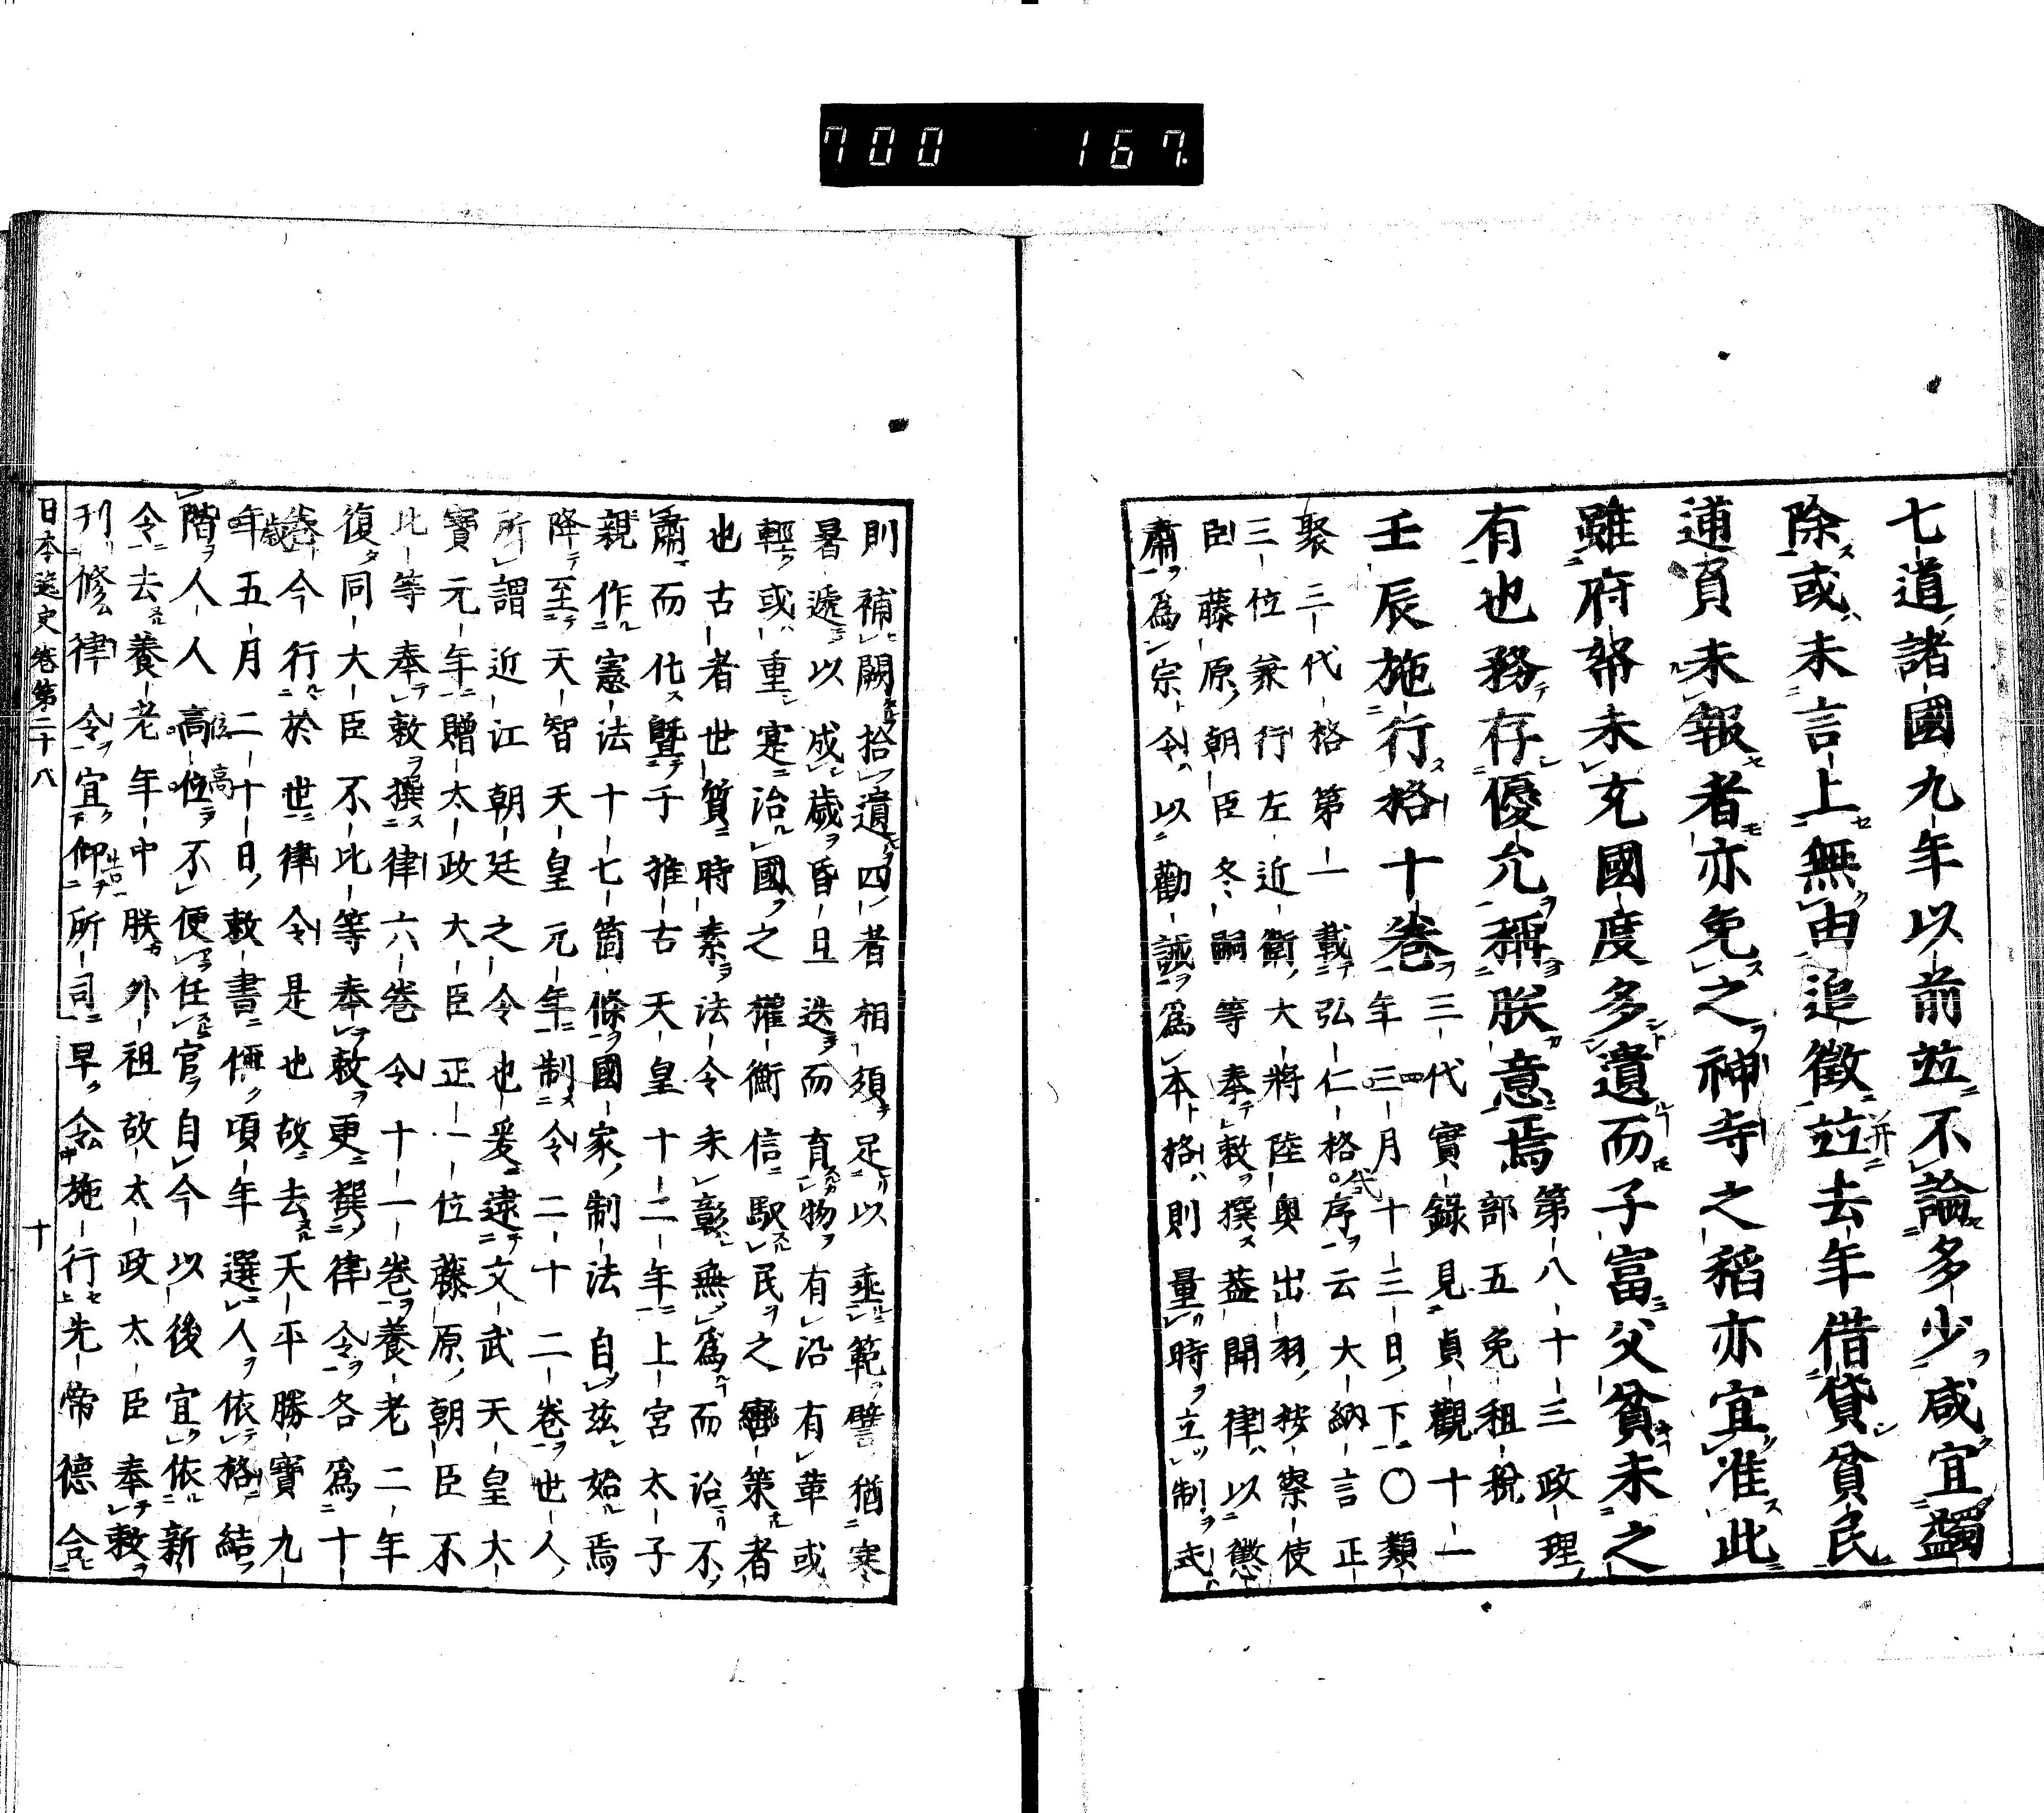 700 167
七道諸國九年以前並不論多少咸宜蠲
除或未言上無由追徵並去年借貸貧民
逋負未報者亦免之神寺之稻亦宜准此
雖府帑未充國度多遺而子富父貧未之
有也務存優允稱朕意焉第八十三政理
部五免租税
壬辰施行格十卷三代實錄見貞觀十一
年三月十三日下〇類
聚三代格第一載弘仁格序云大納言正
三位兼行左近衛大將陸奥出羽按察使
臣藤原朝臣冬嗣等奉敕撰蓋聞律以懲
肅爲宗令以勸誡爲本格則量時立制式
則補闕拾遺四者相須足以垂範譬猶寒
暑遞以成歲昏旦迭而育物有沿有革或
輕或重寔治國之權衡信馭民之轡策者
也古者世質時素法令未彰無爲而治不
肅而化曁于推古天皇十二年上宮太子
親作憲法十七箇條國家制法自茲始焉
降至天智天皇元年制令二十二卷世人
所謂近江朝廷之令也爰逮文武天皇大
寶元年贈太政大臣正一位藤原朝臣不
比等奉敕撰律六卷令十一卷養老二年
復同大臣不比等奉敕更撰律令各爲十
卷今行於世律令是也故去天平勝寶九
年五月二十日敕書偁頃年選人依格結
階人人高位不便任官自今以後宜依新
令去養老年中朕外祖故太政太臣奉敕
刊修律令宜仰所司早令施行先帝德合
日本逸史卷第二十八 十